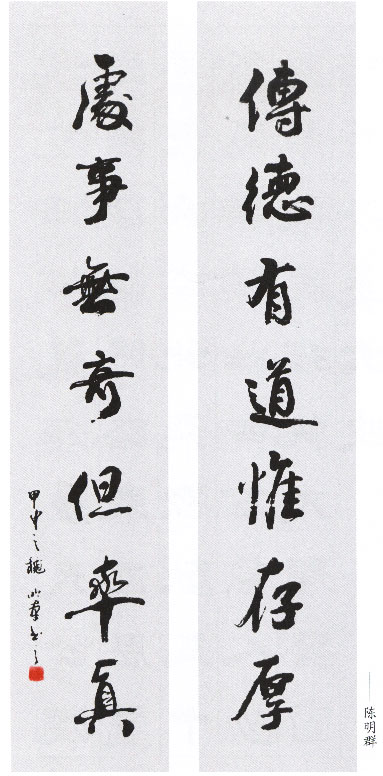 傳德有道惟存厚
處事無奇但率真
甲申之秋明羣書
陈明群